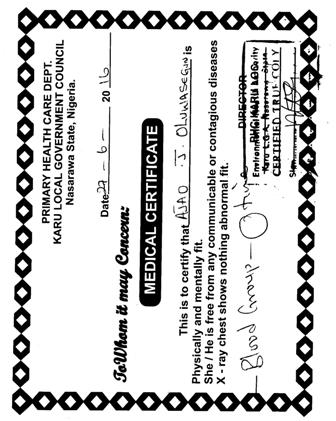 PRIMARY HEALTH CARE DEPT.
KARU LOCAL GOVERNMENT COUNCIL
Nasarawa State, Nigeria.
Date 27 - 6 - 2016
To Whom it may Concern:
MEDICAL CERTIFICATE
This is to certify that AJAO J. OLUWASEGUN is
Physically and mentally fit.
She / He is free from any communicable or contagious diseases
X - ray chest shows nothing abnormal fit.
Blood Group - O
DIRECTOR
KARU LOC
CERTIFIED TRUE COPY